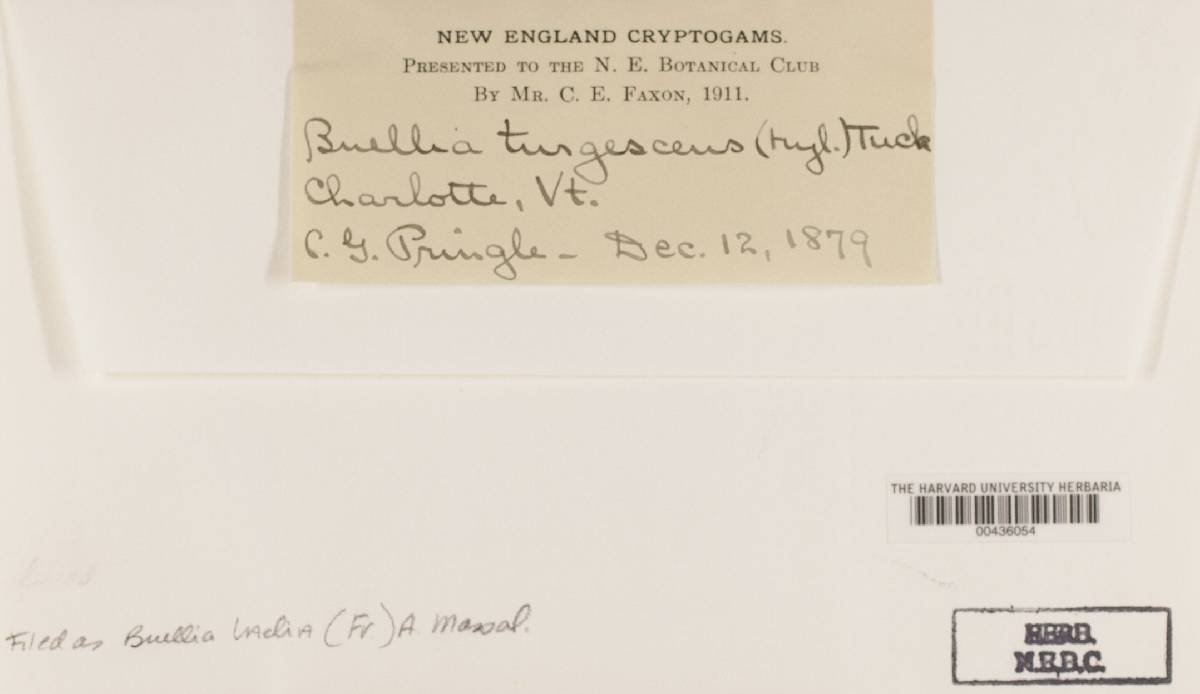 NEW ENGLAND CRYPTOGAMS.
PRESENTED TO THE N. E. BOTANICAL CLUB
BY MR. C. E. FAXON, 1911.
Buellia turgescens (Nyl.) Tuck
Charlotte, Vt.
C. G. Pringle - Dec. 12, 1879
THE HARVARD UNIVERSITY HERBARIA
00436054
Filed as Buellia (Fr.) A. Massal.
HERB.
N.E.B.C.